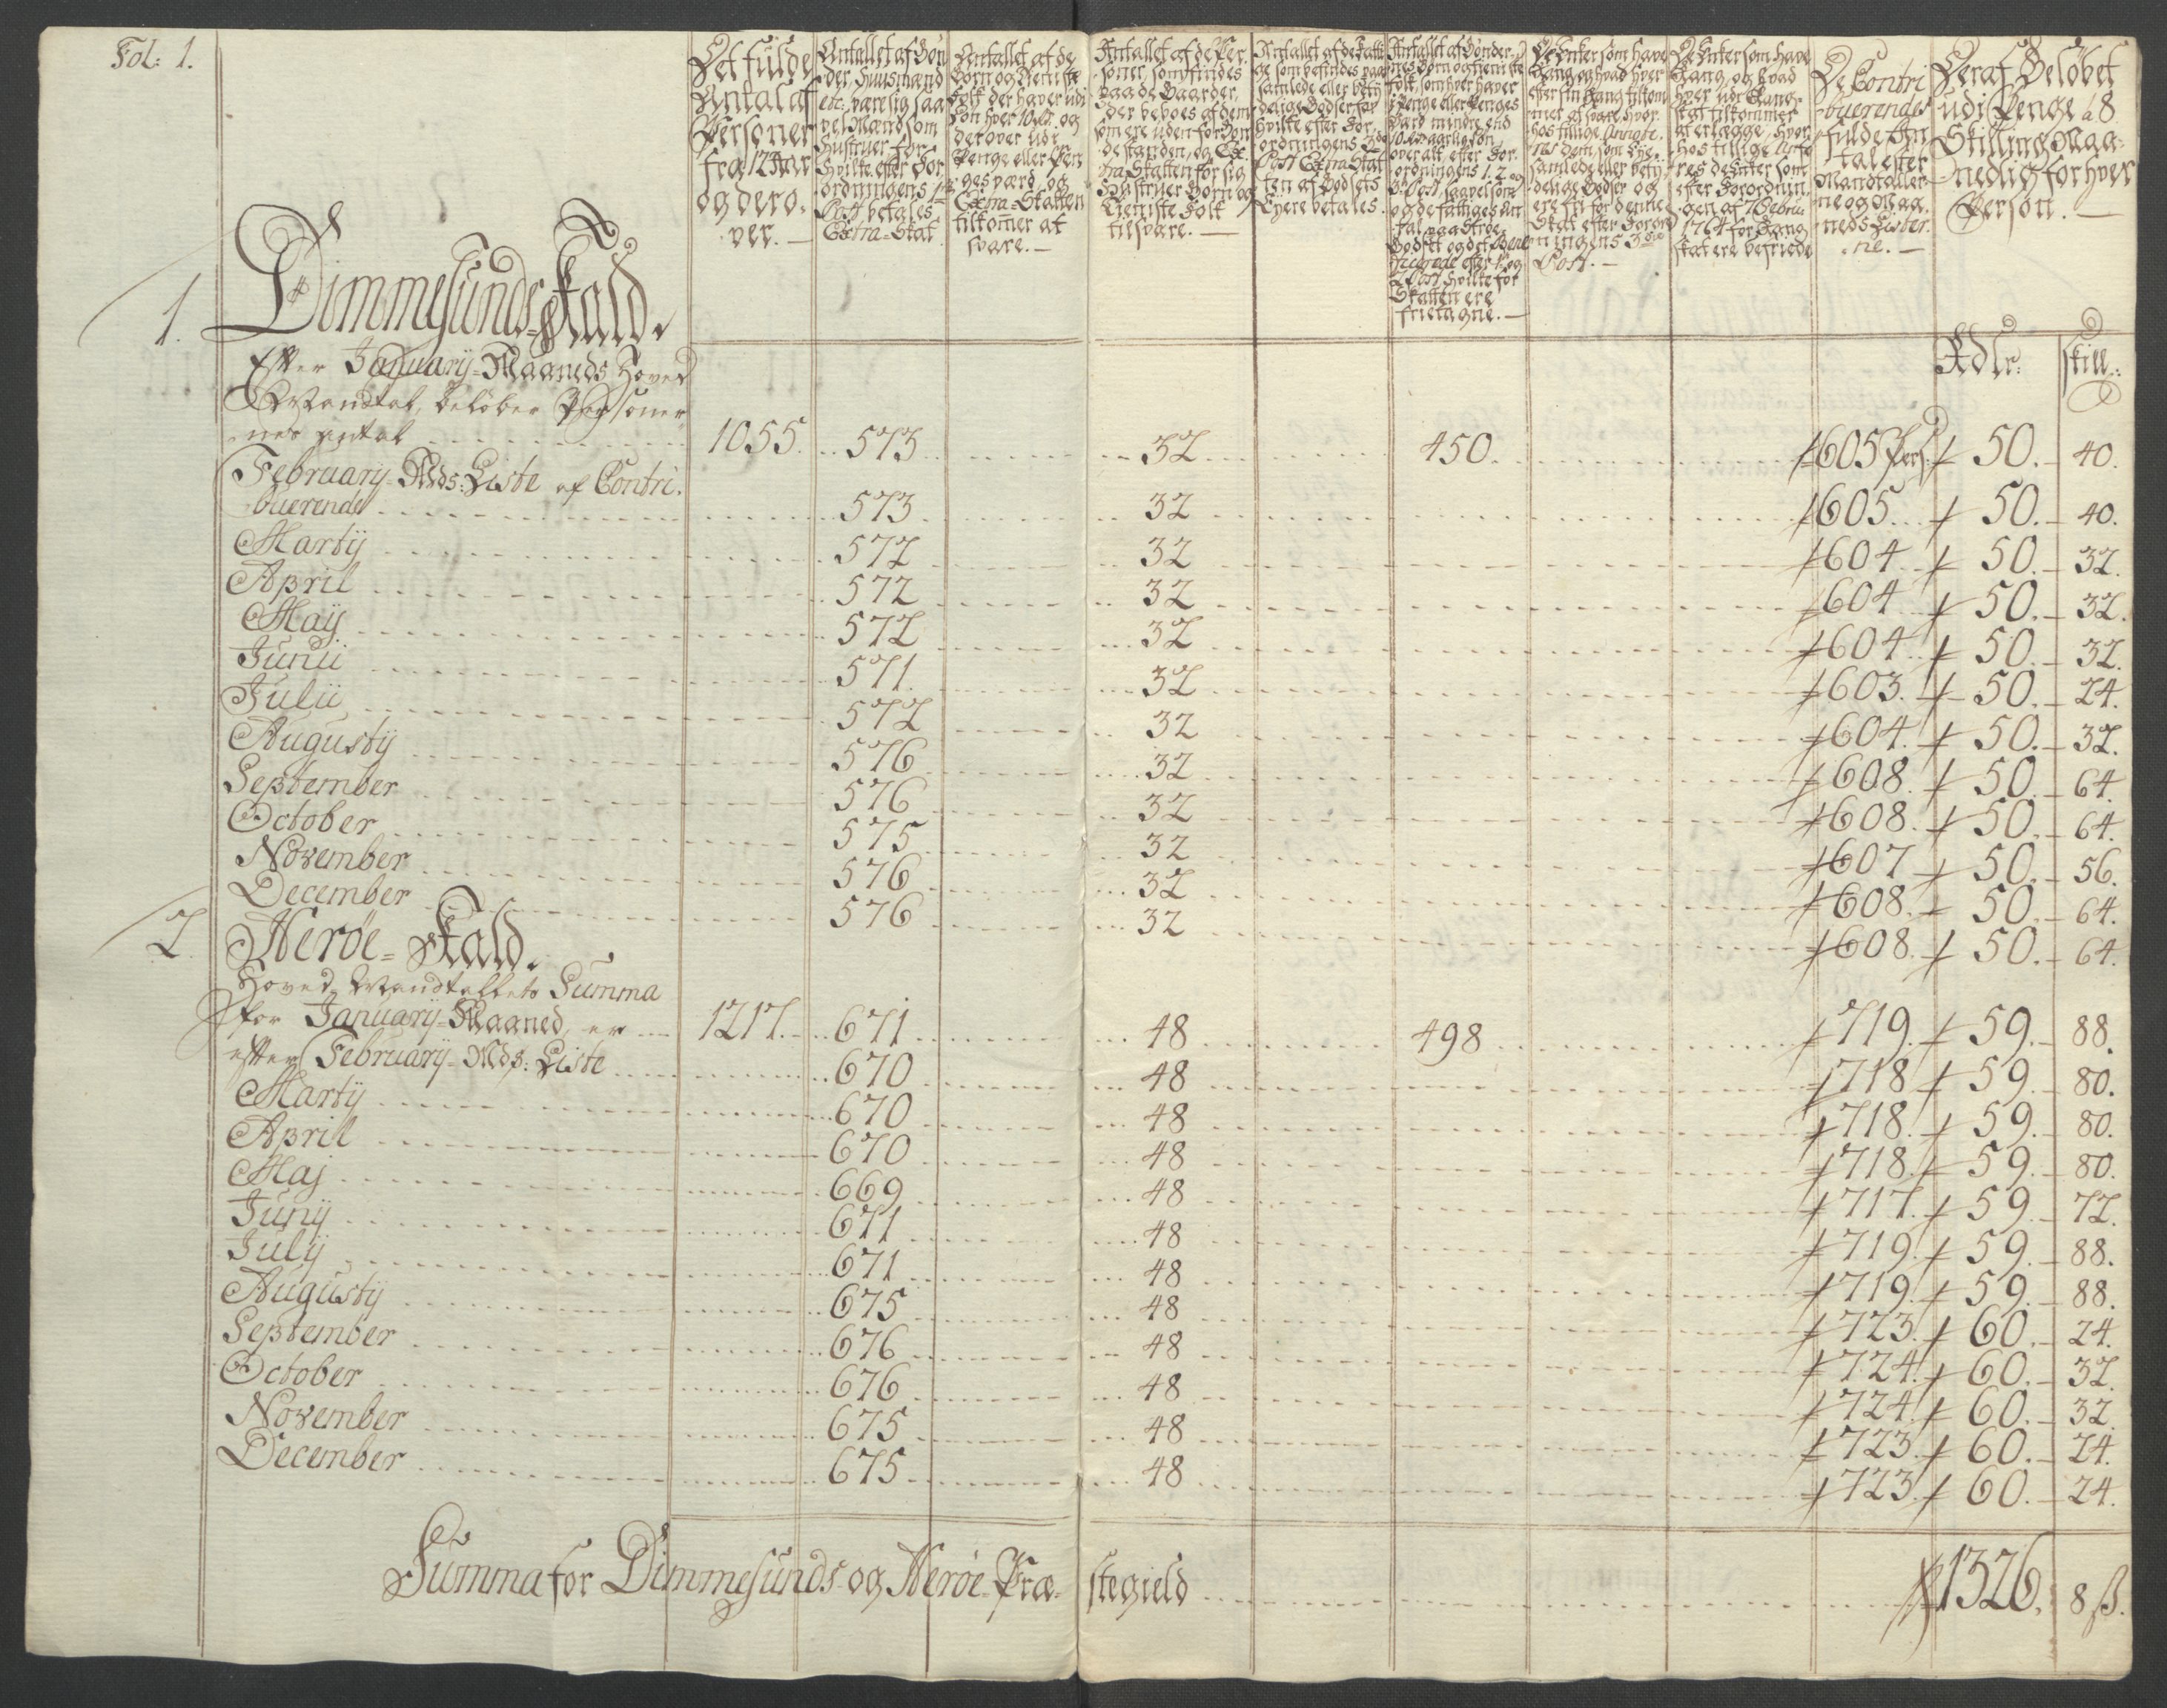 Fol: 1.
Det fulde
Antal af
Personer
fra 12 Aar
og dero-
ver.
Antallet af Bøn
der, Huusmænd
etc: være sig saa
vel Mænd som
Hustruer for
hvilke efter For
ordningens 1ste
Post betales
Extra-Skat
Antallet af de
Børn og Tieniste
Folk der haver udi
Løn hver 10 rdr. og
derover udi
Penge eller Pen
ges værd, og
Extra-Skatten
tilkom̄er at
svare.
Antallet af de Per
soner, som findes
paa de Gaarder,
der beboes af dem
som ere uden for Bon
destanden, og Ex
tra Skatten for sig
Hustruer Børn og
Tieniste Folk
tilsvare.
Antallet af de Fatti
ge som befindes paa
samlede eller betÿ
delige Godser for
hvilke efter For
ordningens
Post Extra Skat
ten af Godsets
Eyere betales.
Antallet af Bønder
nes Børn og tieniste
Folk, som hver haver
i Penge eller Penges
værd mindre end
10 rdr aarlig Løn
over alt, efter For
ordningens 1. 2. og
Post, saavelsom
og de fattiges An
tal paa Strøe
Godset og det
efter
Post hvilke for
Skatten ere
frietagne.
De Enker som have
Rang og hvad hver
efter sin Rang tilkom
mer at svare, hvor
hos tillige
res dem, som Eye
samlede eller betÿ
delige Godser og
ere fri for denne
Skat efter Forord
ningens 3die
Post.
De Enker som have
Rang, og hvad
hver udi Rang
skat tilkommer
at erlegge, hvor
hos tillige Anfø
res de Enker som
efter Forordnin
gen af Febru:
1764 for Rang
skat ere befriede
De Contri
buerendes
fulde An
tal efter
Mandtaller
ne og Maa
neds Lister
ne.
Deraf Beløbet
udi Penge à 8
Skilling Maa-
nedlig for hver
Person.
1. Dimmesunds-Kald.
Rdlr: skill:
Efter January-Maaneds Hoved
Mandtal, beløber Personer
nes antal 1055. 573 32 450. 605 pers: 50. 40.
February-Mds: Liste af Contri-
buerende 573 32 605. 50. 40.
Martÿ 572 32 604 50. 32.
April 572 32 604 50. 32.
Maÿ 572 32 604 50. 32.
Junii 571. 32 603. 50. 24.
Julii 572 32 604. 50. 32.
Augustÿ 576 32 608. 50. 64.
September 576 32 608. 50. 64.
October 575 32 607 50. 56.
November 576 32 608. 50. 64.
December 576 32 608. 50. 64.
2. Herøe-Kald.
Hoved-Mandtallets Summa
for January-Maaned, er 1217. 671 48 498 719. 59. 88.
efter February-Mds: Liste 670 48 718 59. 80.
Martÿ 670 48 718. 59. 80.
April 670 48 718. 59. 80.
Maj 669 48 717. 59. 72.
Junÿ 671 48 719. 59. 88.
Julÿ 671 48 719. 59. 88.
Augustÿ 675 48 723. 60. 24.
September 676 48 724. 60. 32.
October 676 48 724. 60. 32.
November 675 48 723. 60. 24.
December 675 48 723. 60. 24.
Summa for Dimmesunds og Herøe-Præ- stegield 1326. 8 ß.